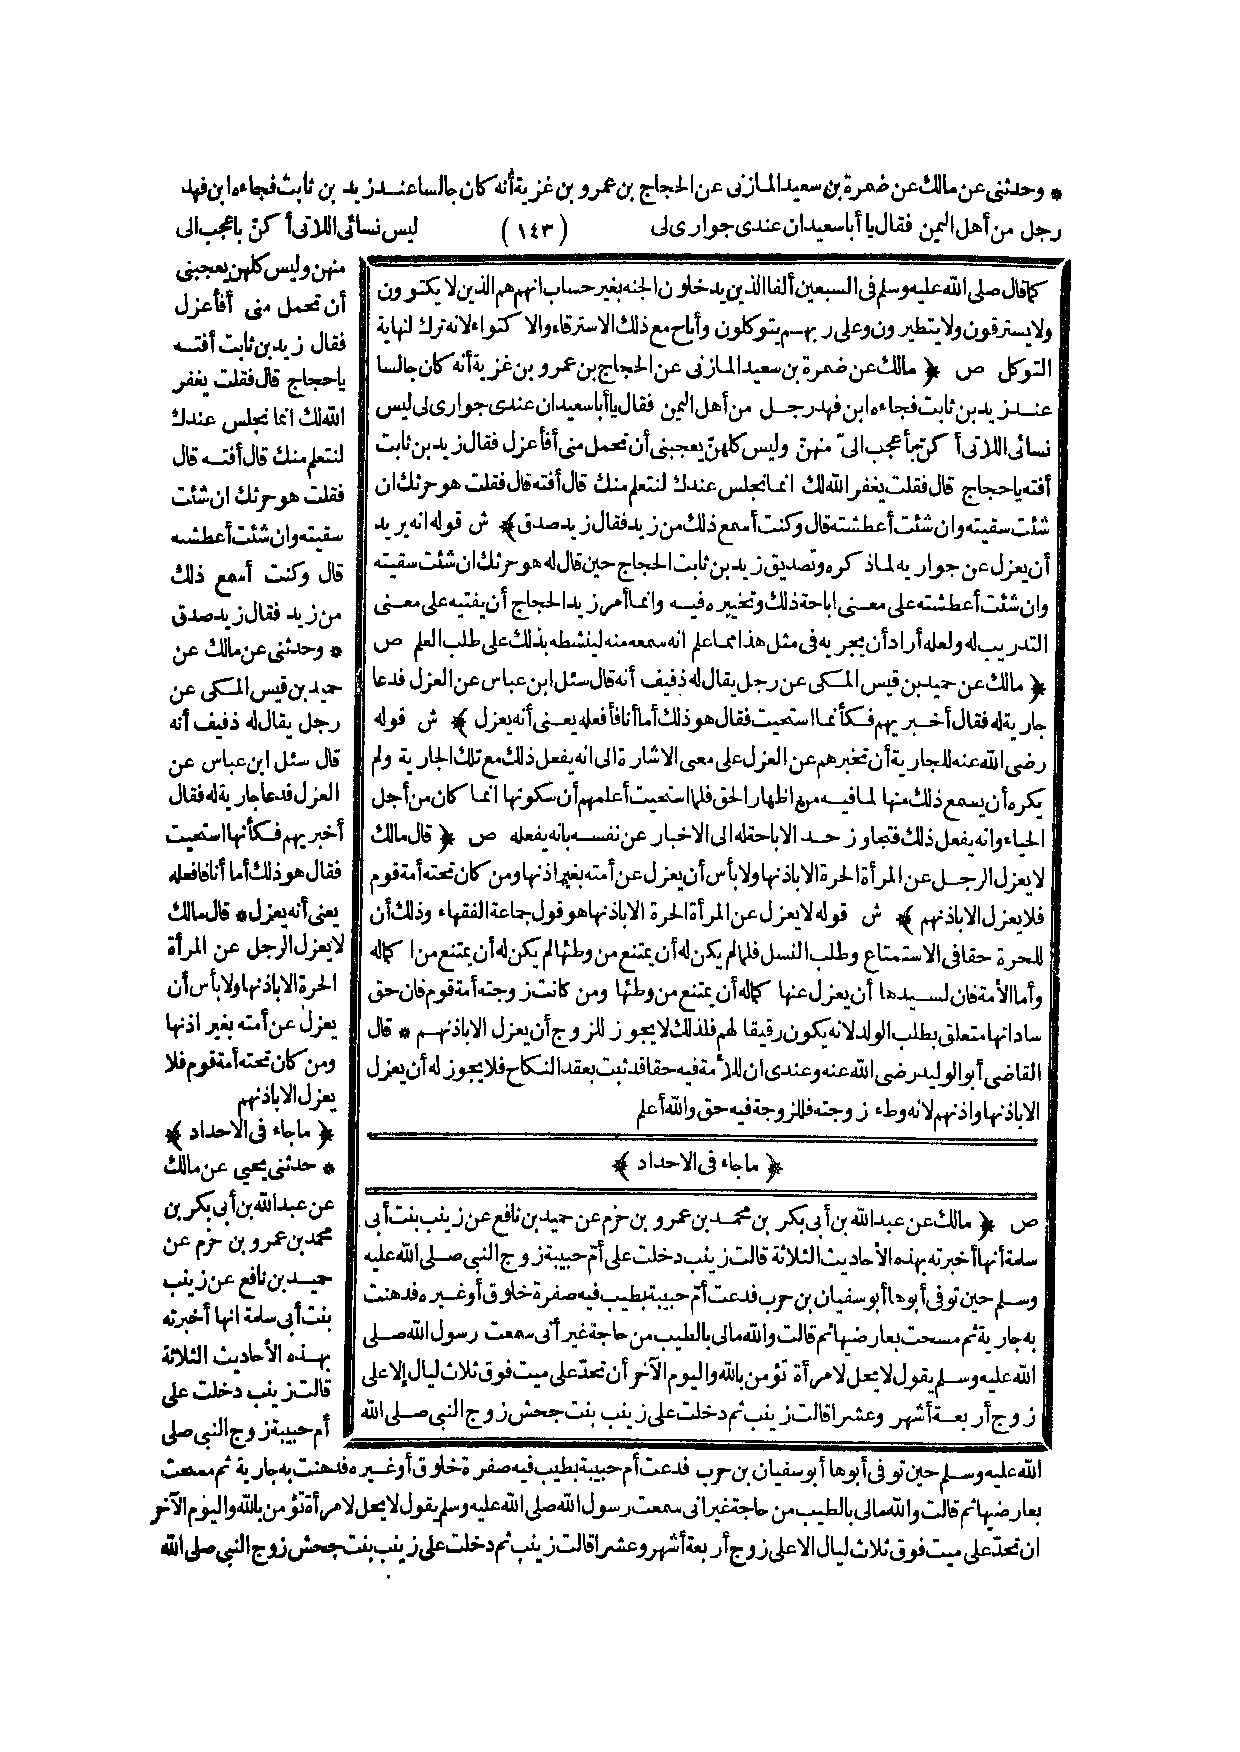 * وحدثنى عن مالك عن ضمرة بن سعيد المازنى عن الحجاج بن عمرو بن غزية أنه كان جالسا عند زيد بن ثابت فجاءه ابن فهد
رجل من أهل اليمن فقال يا أبا سعيد ان عندى جوارى لى (١٤٣) ليس نسائى اللاتى أكنّ بأعجب الى
منهن وليس كلهن يعجبنى
أن تحمل منى أفأعزل
فقال زيد بن ثابت أفته
يا حجاج قال فقلت يغفر
الله لك انما نجلس عندك
لنتعلم منك قال أفته قال
فقلت هو حرثك ان شئت
سقيته وان شئت أعطشته
قال وكنت أسمع ذلك
من زيد فقال زيد صدق
* وحدثنى عن مالك عن
حميد بن قيس المكى عن
رجل يقال له ذفيف أنه
قال سئل ابن عباس عن
العزل فدعا جارية له فقال
أخبريهم فكأنها استحيت
فقال هو ذلك أما أنا فافعله
يعنى أنه يعزل * قال مالك
لا يعزل الرجل عن المرأة
الحرة الا باذنها ولا بأس أن
يعزل عن أمته بغير اذنها
ومن كان تحته أمة قوم فلا
يعزل الا باذنهم
﴿ ما جاء فى الاحداد ﴾
* حدثنى يحيى عن مالك
عن عبد الله بن أبى بكر بن
محمد بن عمرو بن حزم عن
حميد بن نافع عن زينب
بنت أبى سلمة انها أخبرته
بهذه الأحاديث الثلاثة
قالت زينب دخلت على
أم حبيبة زوج النبى صلى
كما قال صلى الله عليه وسلم فى السبعين ألفا الذين يدخلون الجنة بغير حساب انهم هم الذين لا يكتوون
ولا يسترقون ولا يتطيرون وعلى ربهم يتوكلون وأباح مع ذلك الاسترقاء والاكتواء لانه ترك لنهاية
التوكل ص ﴿ مالك عن ضمرة بن سعيد المازنى عن الحجاج بن عمرو بن غزية أنه كان جالسا
عند زيد بن ثابت فجاءه ابن فهد رجل من أهل اليمن فقال يا أبا سعيد ان عندى جوارى لى ليس
نسائى اللاتى أكنّ بأعجب الىّ منهنّ وليس كلهنّ يعجبنى أن تحمل منى أفأعزل فقال زيد بن ثابت
أفته يا حجاج قال فقلت يغفر الله لك انما نجلس عندك لنتعلم منك قال أفته قال فقلت هو حرثك ان
شئت سقيته وان شئت أعطشته قال وكنت أسمع ذلك من زيد فقال زيد صدق ﴾ ش قوله انه يريد
أن يعزل عن جواريه لما ذكره وتصديق زيد بن ثابت الحجاج حين قال له هو حرثك ان شئت سقيته
وان شئت أعطشته على معنى اباحة ذلك وتخييره فيه وانما أمر زيد الحجاج أن يفتيه على معنى
التدريب له ولعله أراد أن يجريه فى مثل هذا مما علم انه سمعه منه لينشطه بذلك على طلب العلم ص
﴿ مالك عن حميد بن قيس المكى عن رجل يقال له ذفيف أنه قال سئل ابن عباس عن العزل فدعا
جارية له فقال أخبريهم فكأنما استحيت فقال هو ذلك أما أنا فأفعله يعنى أنه يعزل ﴾ ش قوله
رضى الله عنه للجارية أن تخبرهم عن العزل على معنى الاشارة الى انه يفعل ذلك مع تلك الجارية ولم
يكره أن يسمع ذلك منها لما فيه من اظهار الحق فلما استحيت أعلمهم أن سكوتها انما كان من أجل
الحياء وانه يفعل ذلك فتجاوز حد الاباحة له الى الاخبار عن نفسه بانه يفعله ص ﴿ قال مالك
لا يعزل الرجل عن المرأة الحرة الا باذنها ولا بأس أن يعزل عن أمته بغير اذنها ومن كان تحته أمة قوم
فلا يعزل الا باذنهم ﴾ ش قوله لا يعزل عن المرأة الحرة الا باذنها هو قول جماعة الفقهاء وذلك أن
للحرة حقا فى الاستمتاع وطلب النسل فلما لم يكن له أن يمتنع من وطئها لم يكن له أن يمتنع من اكماله
وأما الأمة فان لسيدها أن يعزل عنها كماله أن يمتنع من وطئها ومن كانت زوجته أمة قوم فان حق
ساداتها متعلق بطلب الولد لانه يكون رقيقا لهم فلذلك لا يجوز للزوج أن يعزل الا باذنهم * قال
القاضى أبو الوليد رضى الله عنه وعندى ان للأمة فيه حقا قد ثبت بعقد النكاح فلا يجوز له أن يعزل
الا باذنها واذنهم لانه وطء زوجته فللزوجة فيه حق والله أعلم
﴿ ما جاء فى الاحداد ﴾
ص ﴿ مالك عن عبد الله بن أبى بكر بن محمد بن عمرو بن حزم عن حميد بن نافع عن زينب بنت أبى
سلمة أنها أخبرته بهذه الأحاديث الثلاثة قالت زينب دخلت على أم حبيبة زوج النبى صلى الله عليه
وسلم حين توفى أبوها أبو سفيان بن حرب فدعت أم حبيبة بطيب فيه صفرة خلوق أو غيره فدهنت
به جارية ثم مسحت بعارضيها ثم قالت والله مالى بالطيب من حاجة غير أنى سمعت رسول الله صلى
الله عليه وسلم يقول لا يحل لامرأة تؤمن بالله واليوم الآخر أن تحدّ على ميت فوق ثلاث ليال إلا على
زوج أربعة أشهر وعشرا قالت زينب ثم دخلت على زينب بنت جحش زوج النبى صلى الله
الله عليه وسلم حين توفى أبوها أبو سفيان بن حرب فدعت أم حبيبة بطيب فيه صفرة خلوق أو غيره فدهنت به جارية ثم مسحت
بعارضيها ثم قالت والله مالى بالطيب من حاجة غير انى سمعت رسول الله صلى الله عليه وسلم يقول لا يحل لامرأة تؤمن بالله واليوم الآخر
ان تحدّ على ميت فوق ثلاث ليال الا على زوج أربعة أشهر وعشرا قالت زينب ثم دخلت على زينب بنت جحش زوج النبى صلى الله